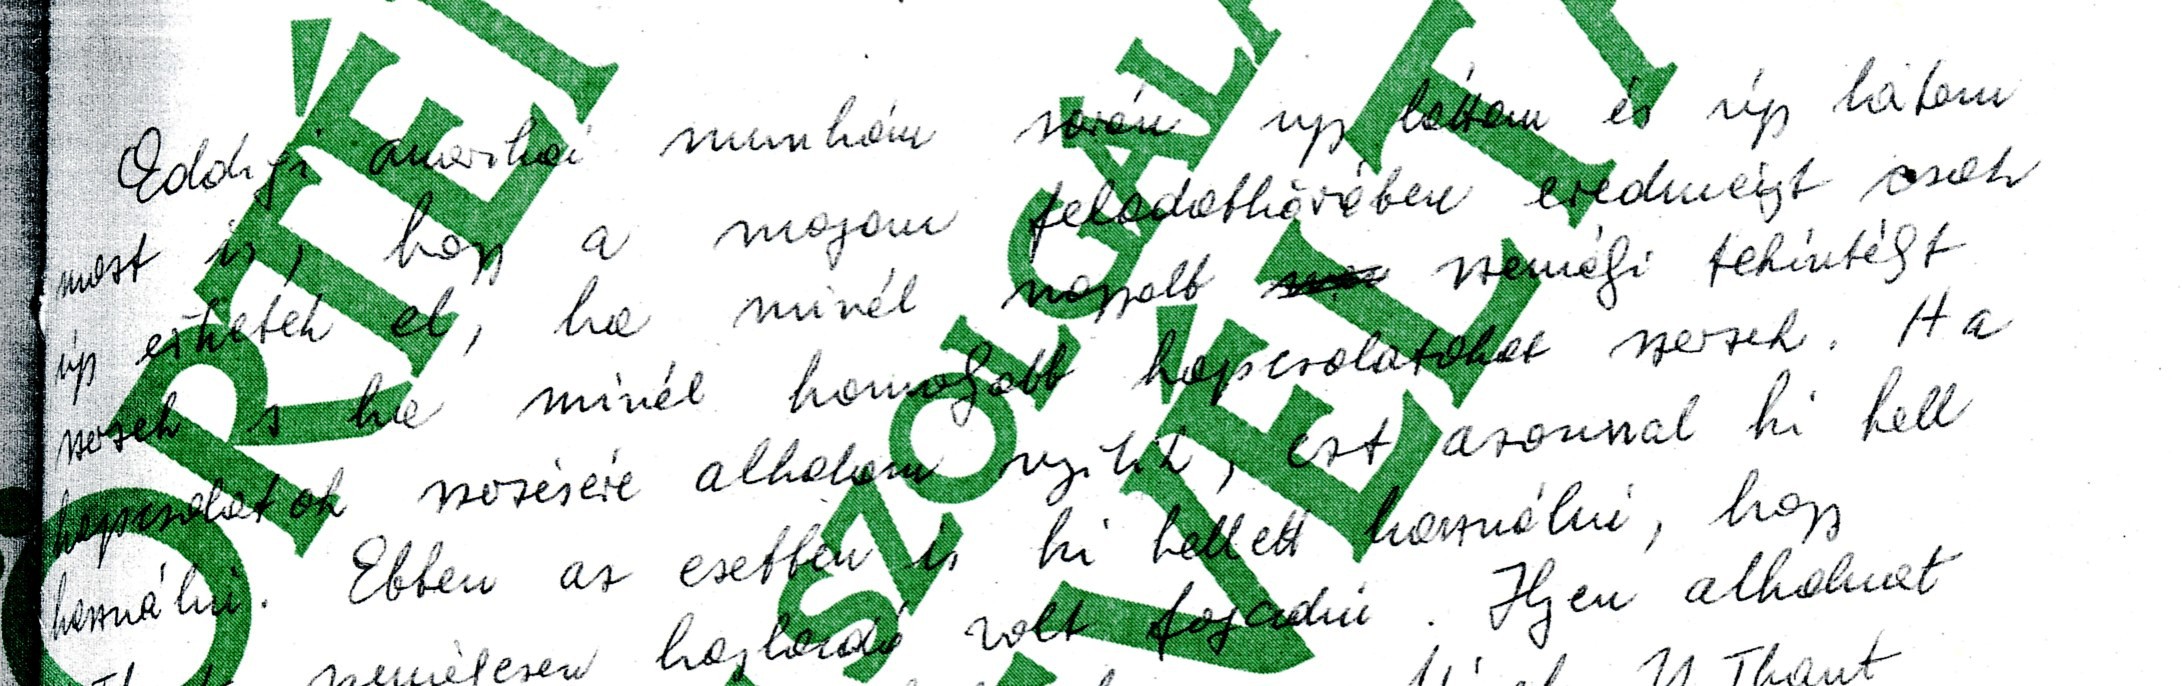 Eddigi amerikai munkám során úgy láttam és úgy látom
most is, hogy a magam feladatkörében eredményt csak
úgy érhetek el, ha minél nagyobb személyi tekintélyt
szerzek s ha minél komolyabb kapcsolatokat szerzek. Ha a
kapcsolatok szerzésére alkalom nyílik, ezt azonnal ki kell
használni. Ebben az esetben is ki kellett használni, hogy
személyesen hajlandó volt fogadni. Ilyen alkalmat
U Thant
ÖRTÉ
SZOLGÁL
VÉLT